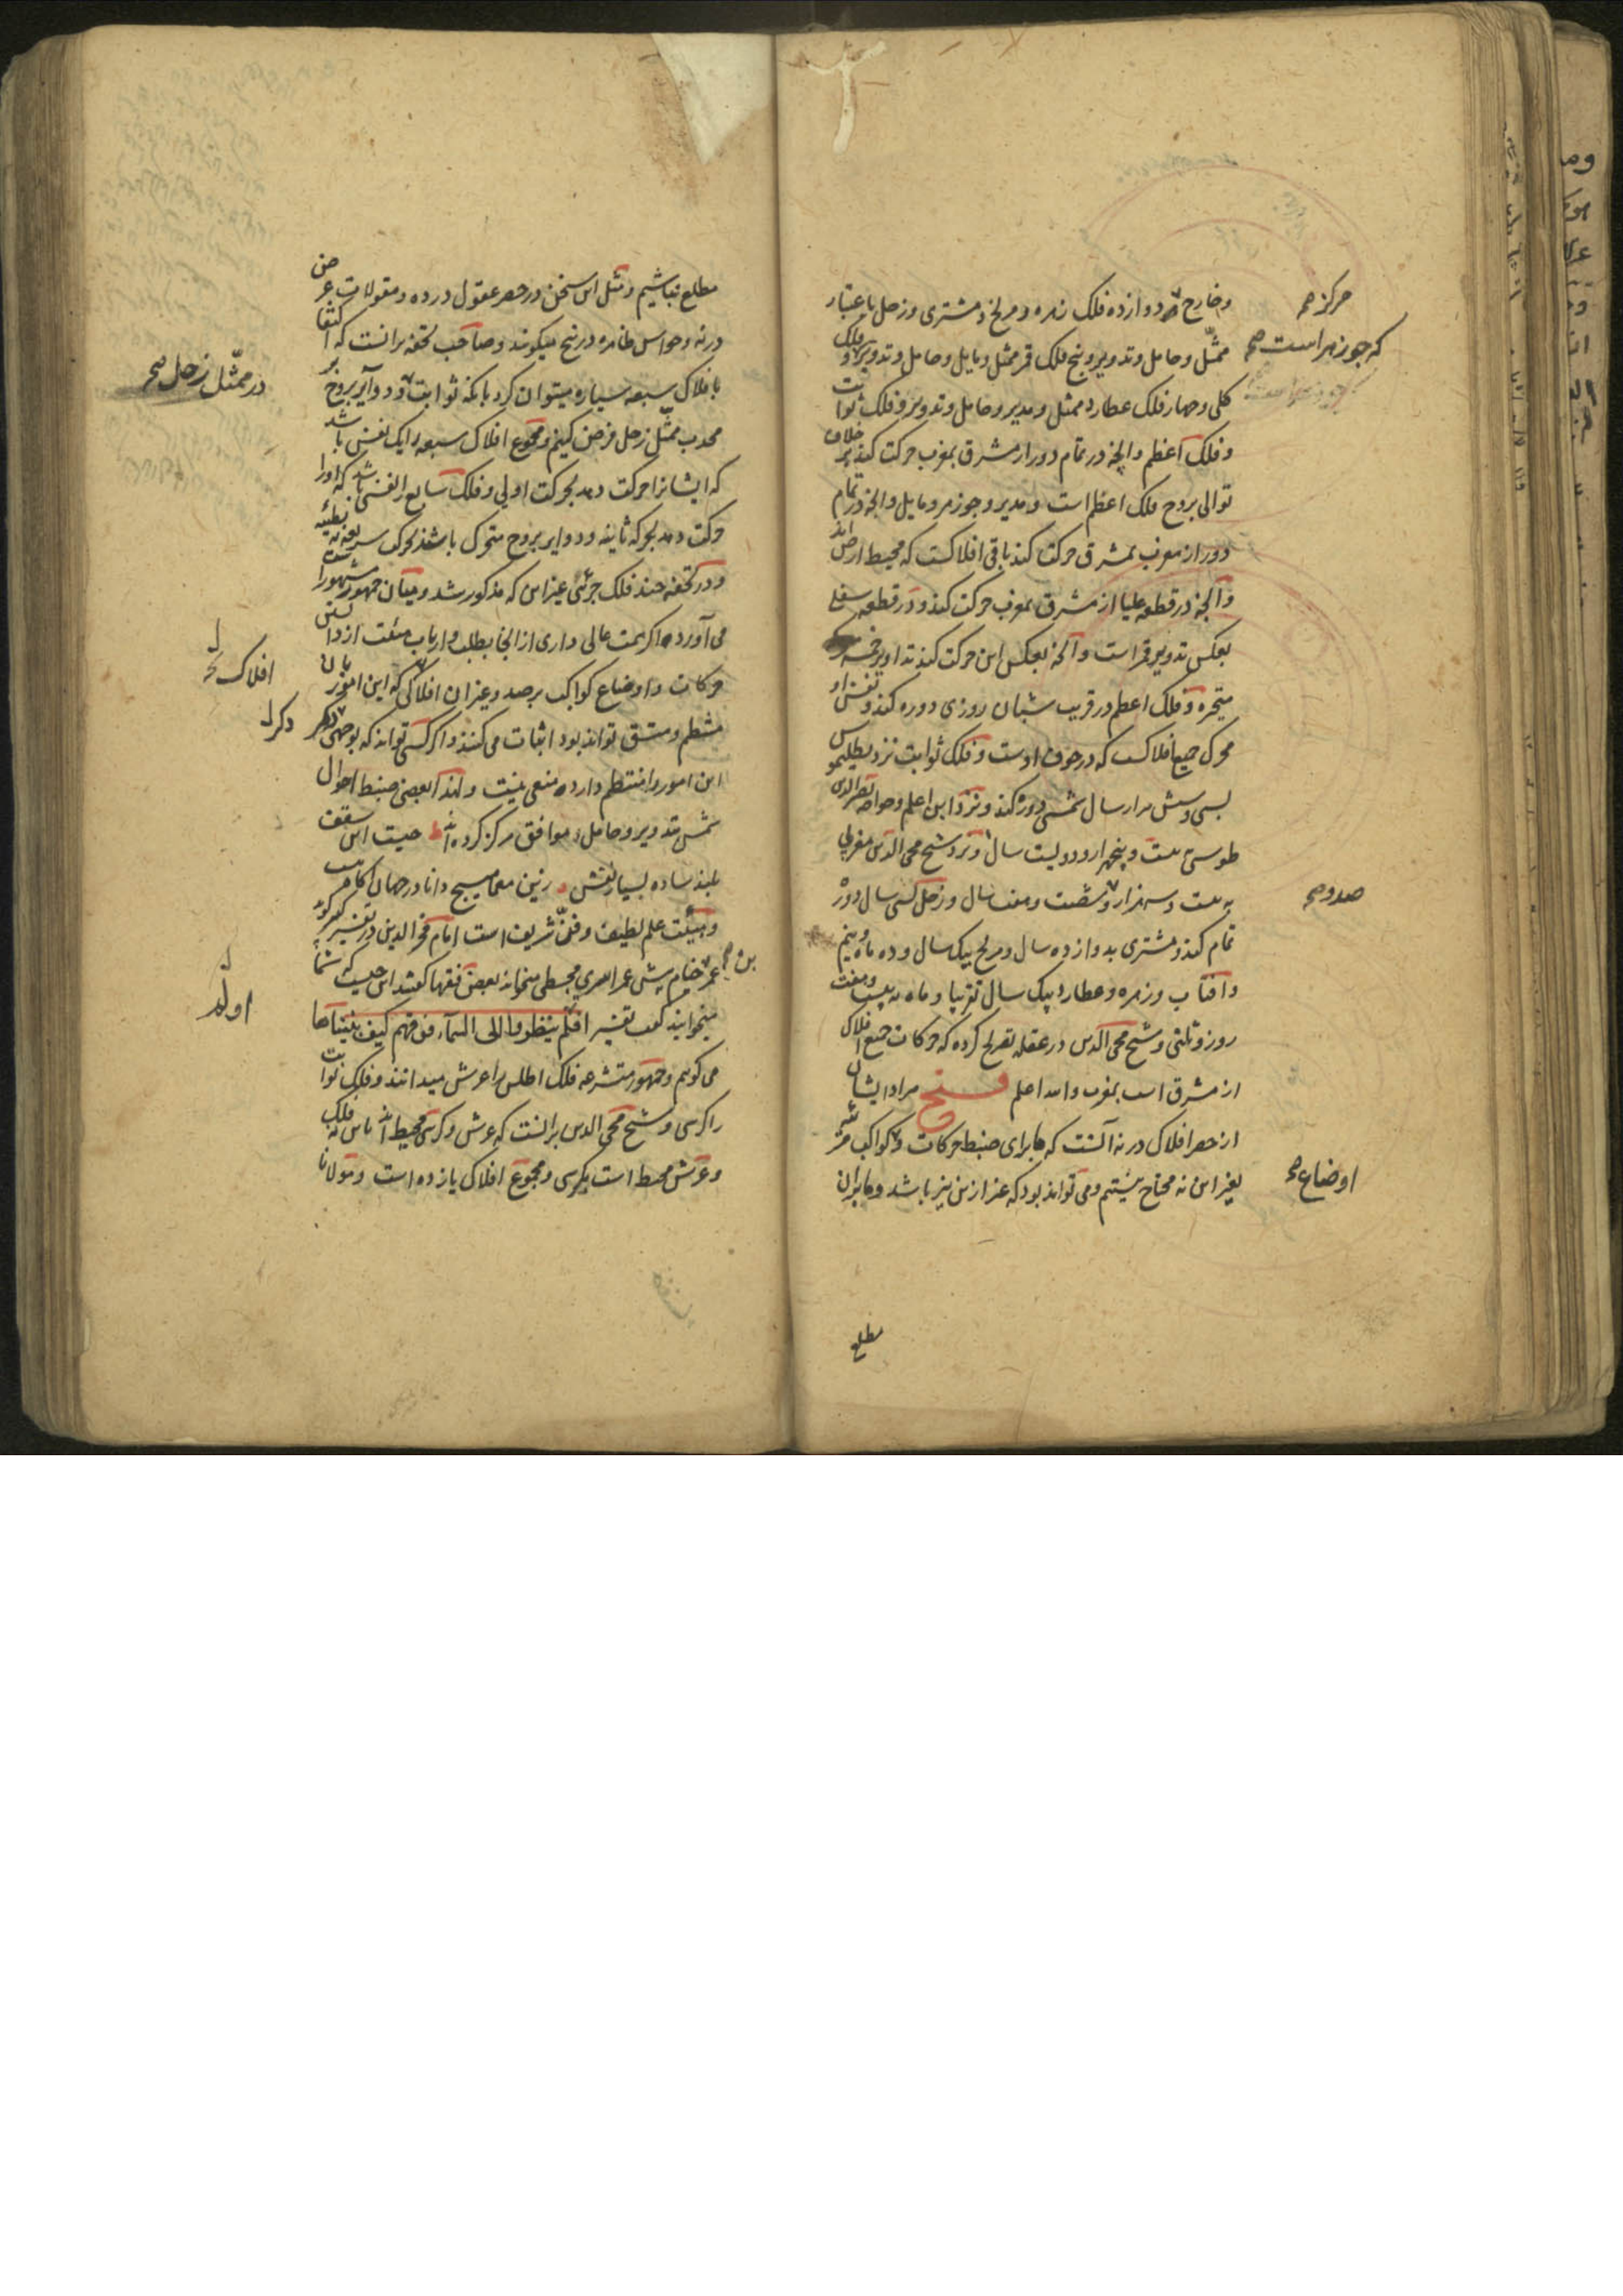 و خارج و دوازده فلک زهره و مریخ و مشتری و زحل باعتبار
مرکز صح
ممثّل و حامل و تدویر و پنج فلک قمر ممثل و مایل و حامل و تدویر و فلک
که جوزهر است صح
کلی و چهار فلک عطارد ممثل و مدیر و حامل و تدویر و فلک ثوابت
و فلک اعظم و آنچه در تمام دور از مشرق بمغرب حرکت کند بر خلاف
توالی بروج فلک اعظم است و مدیر و جوزهر و مایل و آنچه در تمام
دور از مغرب بمشرق حرکت کند باقی افلاکست که محیط ارض اند
و آنچه در قطعه علیا از مشرق بمغرب حرکت کند و در قطعه سفلی
بعکس تدویر قمر است و آنچه بعکس این حرکت کند تداویر خمسه
متحیره و فلک اعظم در قریب شبان روزی دوره کند و نفس او
محرک جمیع افلاکست که در جوف اوست و فلک ثوابت نزد بطلیموس
بسی و شش هزار سال شمسی دوره کند و نزد ابن اعلم و خواجه نصیر الدین
طوسی به بیست و پنجهزار و دویست سال و نزد شیخ محی الدین مغربی
به بیست و سهزار و شصت و هفت سال و زحل بسی سال دوره
صد و صح
تمام کند و مشتری بدوازده سال و مریخ بیک سال و ده ماه و نیم
و آفتاب و زهره و عطارد بیک سال تقریبا و ماه به بیست و هفت
روز و ثلثی و شیخ محی الدین در عقله تصریح کرده که حرکات جمیع افلاک
از مشرق است بمغرب والله اعلم فتح مراد ایشان
از حصر افلاک در نه آنست که ما برای ضبط حرکات و کواکب
اوضاع صح
بغیر این نه محتاج نیستیم و می تواند بود که غیر ازین نیز باشد و ما بران
مطلع
مطلع نباشیم و مثل این سخن در حصر عقول در ده و مقولات عرض
در نه و حواس ظاهره در پنج میگویند و صاحب تحفه برانست که اکتفا
بافلاک سبعه سیاره میتوان کرد بانکه ثوابت و دوایر بروج بر
محدب ممثّل زحل فرض کنیم و مجموع افلاک سبعه را یک نفس باشد
در ممثّل زحل صح
که ایشانرا حرکت دهد بحرکت اولی و فلک سابع را نفسی باشد که او را
حرکت دهد بحرکه ثانیه و دوایر بروج متحرک باشد بحرکت سریعه نه بطیئه
و در تحفه چند فلک جزئی غیر این که مذکور شد و میان جمهور مشهور است
می آورده اگر همت عالی داری از انجا بطلب و ارباب هیئت از دانستن
حرکات و اوضاع کواکب برصد و غیر ان افلاکی که این امور بان
افلاک
منتظم و متسق تواند بود اثبات می کنند و اگر کسی تواند که بوجهی دیگر
دیگر
این امور را منتظم دارد منعی نیست و لهذا بعضی ضبط احوال
شمس بتدویر و حامل موافق مرکز کرده اند چیست این سقف
بلند ساده بسیار نقش زین معما هیچ دانا در جهان آگاه نیست
و هیئت علم لطیف و فنّ شریف است امام فخر الدین در تفسیر کبیر گوید
عمر خیام پیش عمر ابهری مجسطی میخواند بعضی فقها گفتند این چیست که شما
بن صح
میخوانید گفت تفسیر افلم ینظروا الی السمآء فوقهم کیف بنیناها
اولم
می گویم و جمهور متشرعه فلک اطلس را عرش میدانند و فلک ثوابت
را کرسی و شیخ محی الدین برانست که عرش و کرسی محیط اند باین نه فلک
و عرش محیط است بکرسی و مجموع افلاک یازده است و مولانا